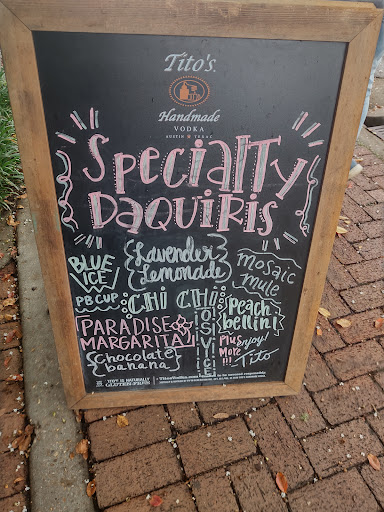 Tito's
Handmade
VODKA
AUSTIN TEXAS
Specialty
DaQuiris
BLUE
ICE
Lavender
Lemonade
mosaic
mule
PB CUP
CHI CHI
Peach
bellini
PARADISE
MARGARITA
Plus
More
!!!
Enjoy!
Tito
chocolate
banana
VDKA IS NATURALLY
GLUTEN-FREE